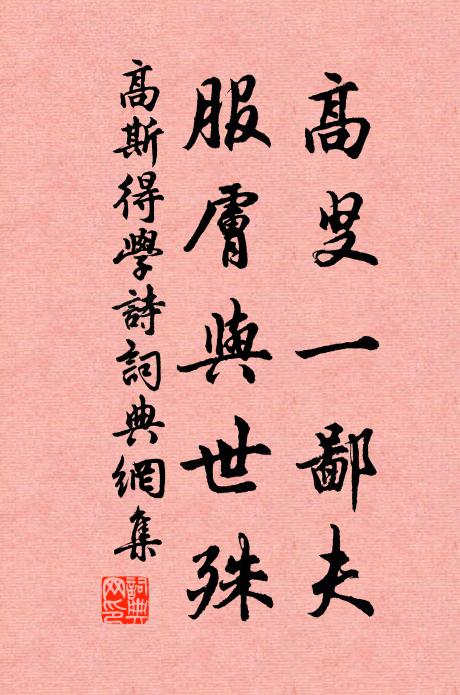 高叟一鄙夫
服膺與世殊
高斯得學詩詞典網集
詞典網印